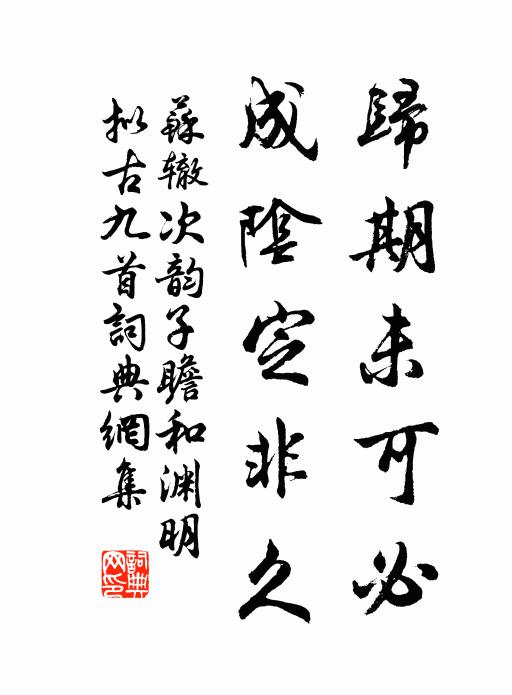 歸期未可必
成陰定非久
蘇辙次韵子瞻和渊明
拟古九首詞典網集
詞典
网印